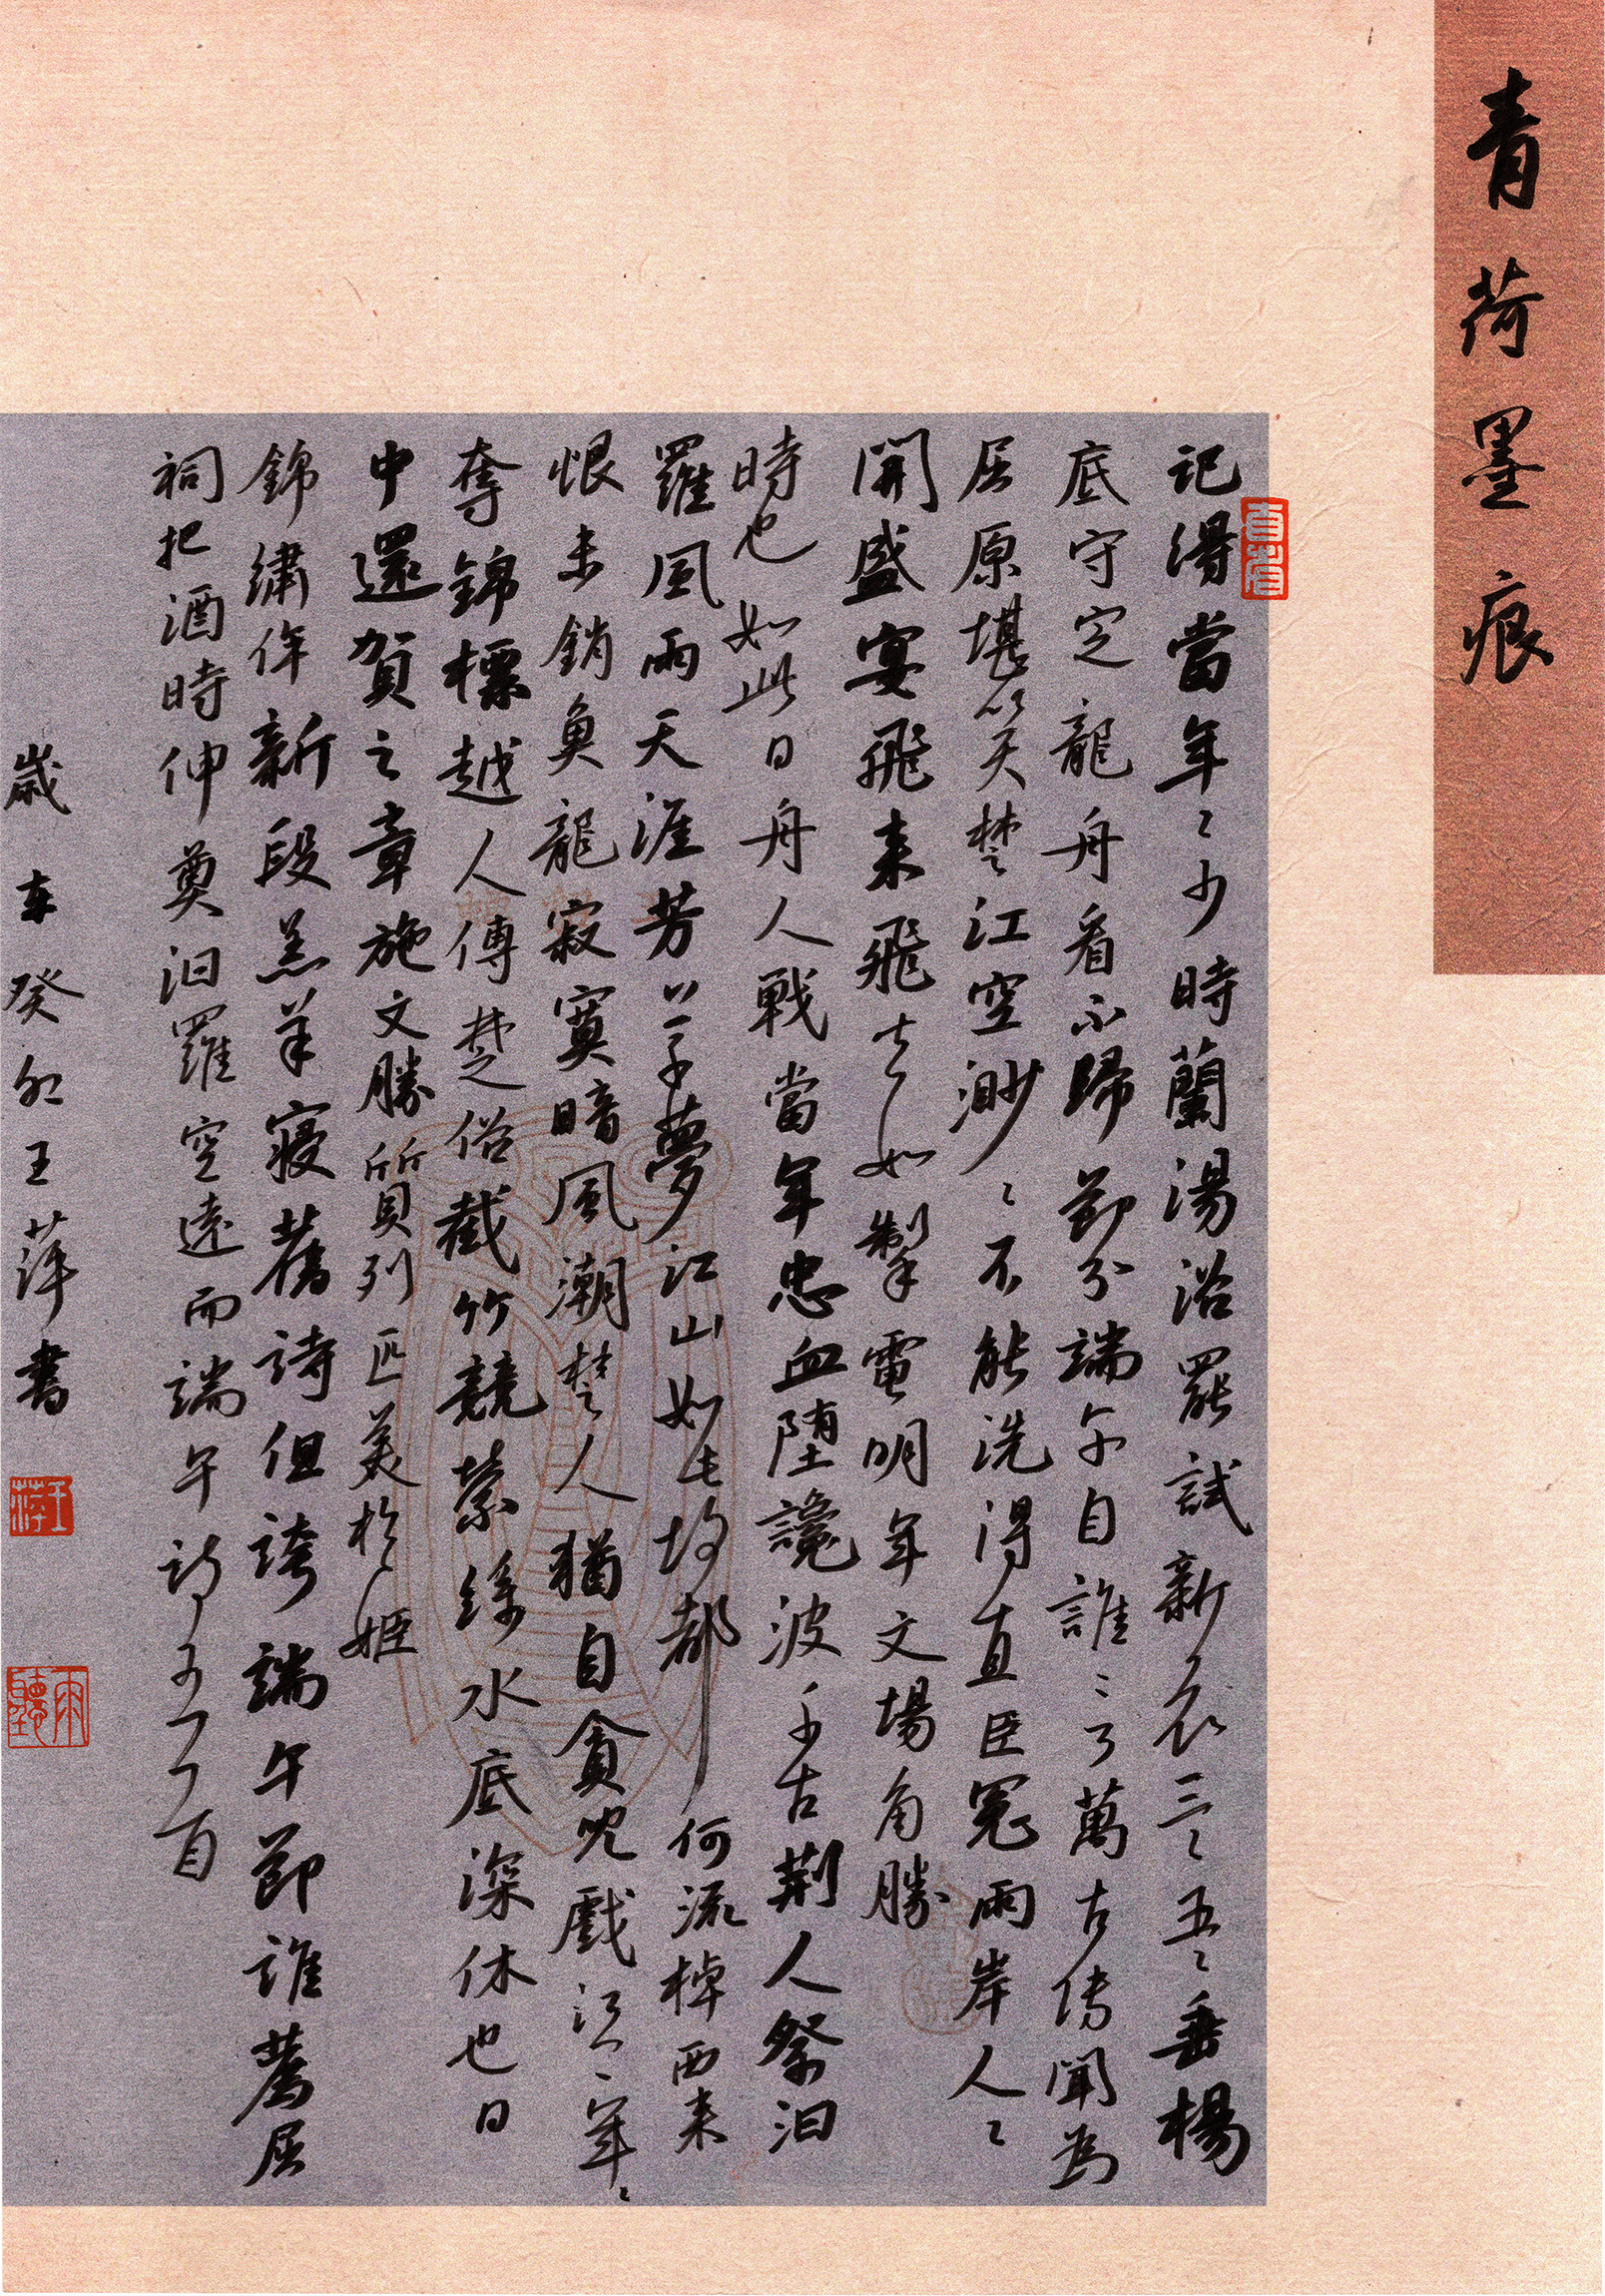 青荷墨痕
記得當年〻少時蘭湯浴罷試新衣三〻五〻垂楊
底守定龍舟看不歸 節分端午自誰〻言萬古傳聞為
屈原堪笑楚江空渺〻不能洗得直臣冤兩岸人〻
開盛宴飛來飛去如掣電明年文場角勝
時也如此日舟人戰當年忠血墮讒波千古荊人祭汨
羅風雨天涯芳草夢江山如此故都何 流棹西來
恨未銷魚龍寂寞暗風潮楚人猶自貪兒戲江上年〻
奪錦標越人傳楚俗截竹競縈絲水底深休也日
中還賀之章施文勝質列匹美於姬
錦繡侔新段羔羊寢舊詩但誇端午節誰薦屈
祠把酒時伸奠汨羅空遠而端午詩
歲在癸卯王萍書
王萍